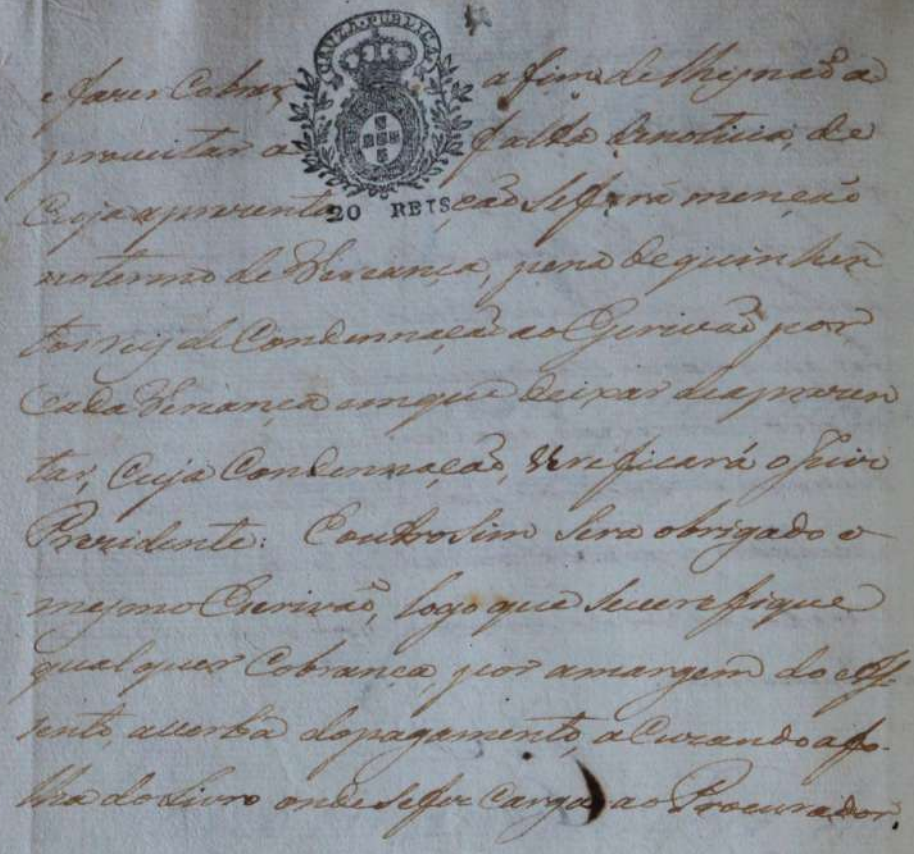 CAUZA PUBLICA
20 REIS
e fazer Cobrar, a fim de lhe não a
proveitar a falta de noticia, de
Cuja aprezenta ção se fará menção
no termo de Veriança, pena de quinhen
tos reis de Condemnação ao Escrivão por
Cada Veriança em que deixar de aprezen
tar, Cuja Condemnação, Verificará o Juiz
Prezidente: E outro sim sera obrigado o
mesmo Escrivão, logo que se verefique
qualquer Cobrança, por a margem do As
sento, a verba do pagamento, acuzando a fo-
lha do Livro onde se fez Carga ao Procurador.